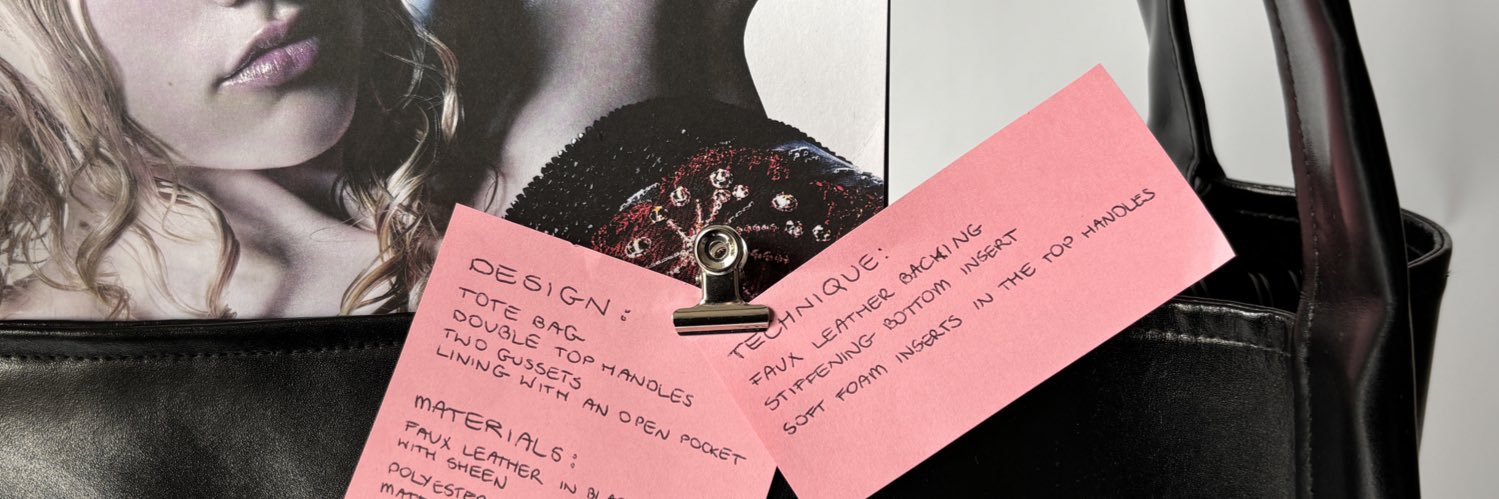 DESIGN:
TOTE BAG
DOUBLE TOP HANDLES
TWO GUSSETS
LINING WITH AN OPEN POCKET
MATERIALS:
FAUX LEATHER IN
WITH SHEEN
POLYESTER
TECHNIQUE:
FAUX LEATHER BACKING
STIFFENING BOTTOM INSERT
SOFT FOAM INSERTS IN THE TOP HANDLES